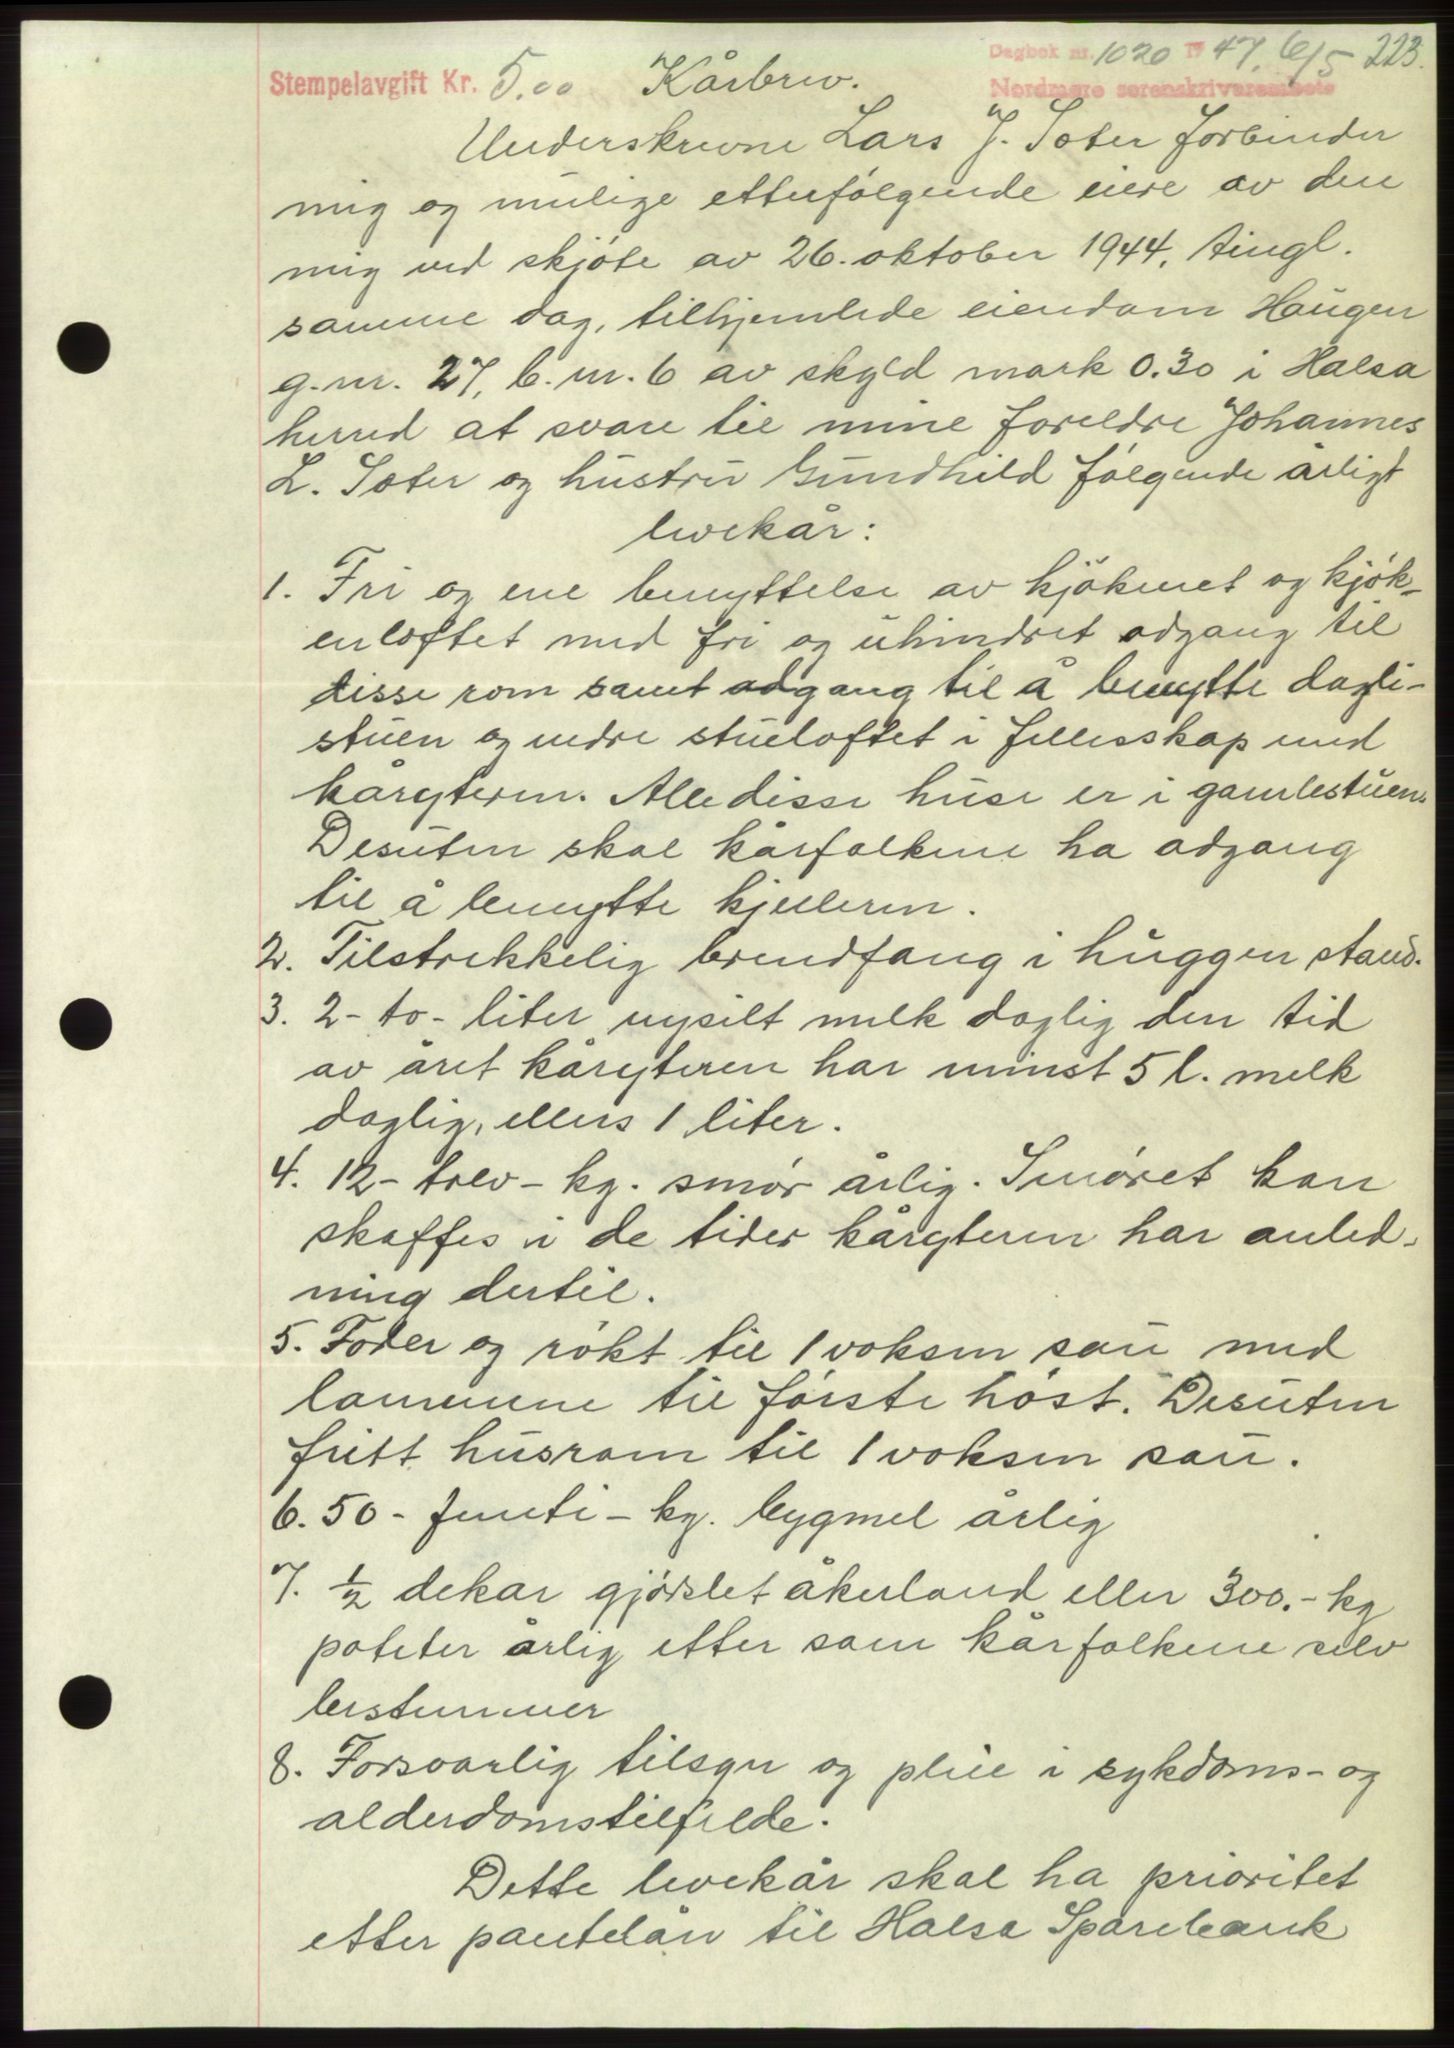 Dagbok nr. 1020 19 47, 6/5 223.
Stempelavgift Kr. 5.00 Kårbrev.
Nordmøre sorenskriverembete
Underskrevne Lars J. Sæter forbinder
mig og mulige etterfølgende eiere av den
mig ved skjøte av 26. oktober 1944, tingl.
samme dag, tilhjemlede eiendom Haugen
g.nr. 27, b.nr. 6 av skyld mark 0.30 i Halsa
herred at svare til mine foreldre Johannes
L. Sæter og hustru Gundhild følgende årligt
livekår:
1. Fri og ene benyttelse av kjøkenet og kjøk-
enloftet med fri og uhindret adgang til
disse rom samt adgang til å benytte dagli-
stuen og nedre stueloftet i fellesskap med
kåryteren. Alle disse huse er i gamlestuen.
Desuten skal kårfolkene ha adgang
til å benytte kjelleren.
2. Tilstrekkelig brendfang i huggen stand.
3. 2- to- liter nysilt melk daglig den tid
av året kåryteren har minst 5 l. melk
daglig, ellers 1 liter.
4. 12- tolv - kg. smør årlig. Smøret kan
skaffes i de tider kåryteren har anled-
ning dertil.
5. Foder og røkt til 1 voksen sau med
lammene til første høst. Desuten
fritt husrom til 1 voksen sau.
6. 50 - femti - kg. bygmel årlig
7. ½ dekar gjødslet åkerland eller 300.- kg
poteter årlig etter som kårfolkene selv
bestemmer
8. Forsvarlig tilsyn og pleie i sykdoms- og
alderdomstilfelde.
Dette livekår skal ha prioritet
etter pantelån til Halsa Sparebank